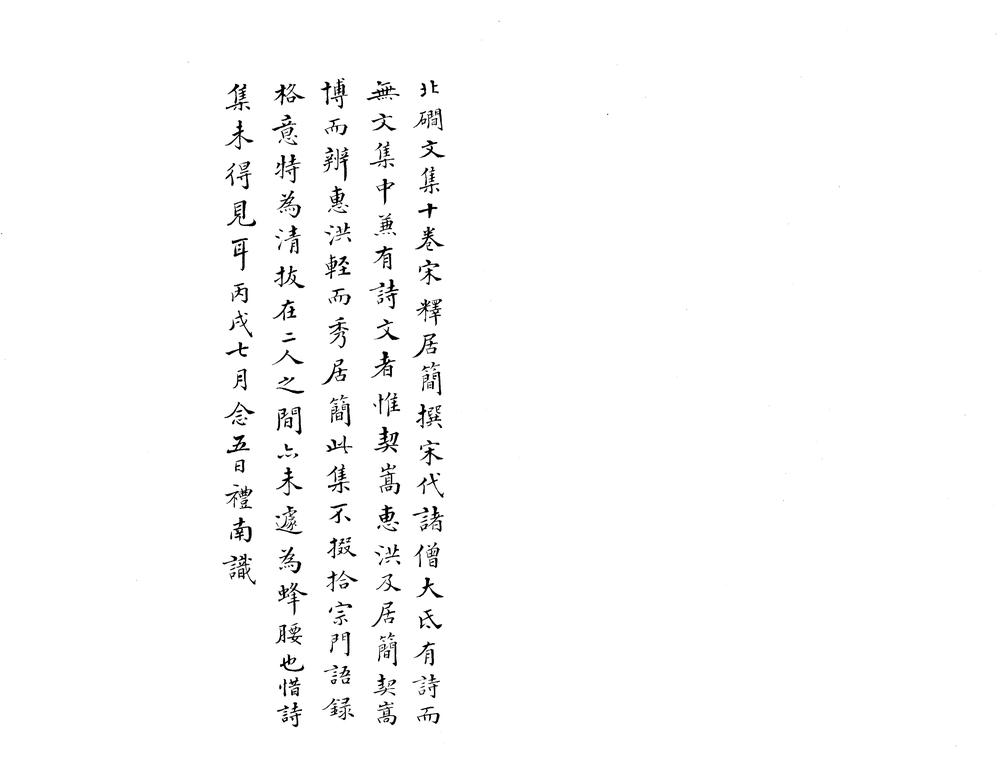 北磵文集十卷宋釋居簡撰宋代諸僧大氐有詩而
無文集中兼有詩文者惟契嵩惠洪及居簡契嵩
博而辨惠洪輕而秀居簡此集不掇拾宗門語録
格意特為清拔在二人之間亦未遽為蜂腰也惜詩
集未得見耳丙戌七月念五日禮南識